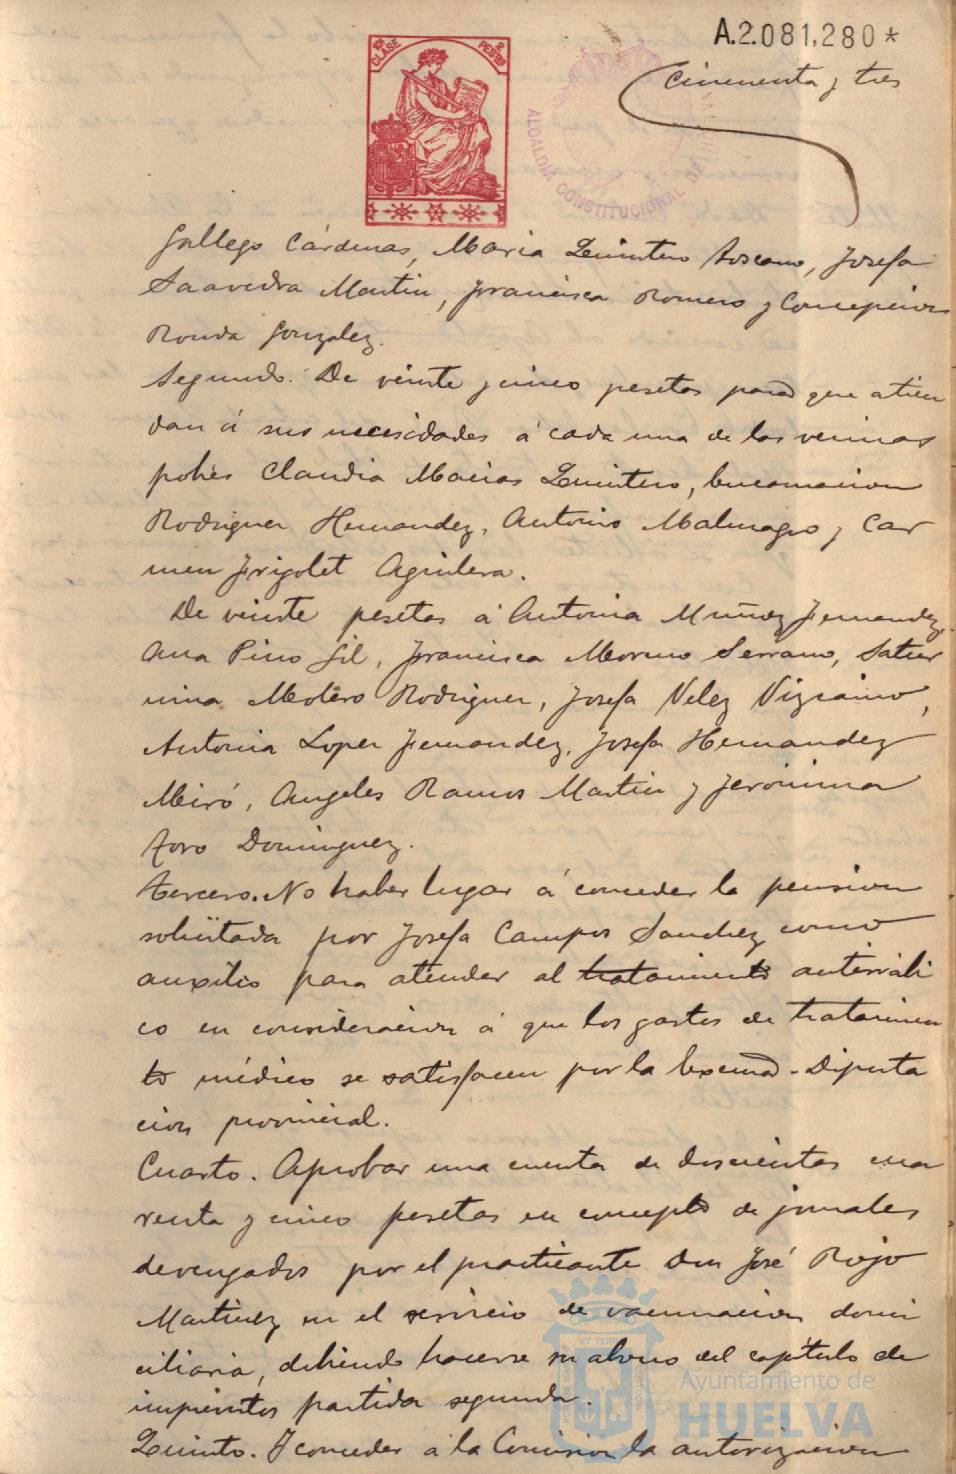 A.2.081,280*
10ª CLASE
2 PESETAS
Cincuenta y tres
ALCALDIA CONSTITUCIONAL DE
Gallego Cárdenas, Maria Quintero Toscano, Josefa
Saavedra Martin, Francisca Romero y Concepcion
Ronda Gonzalez.
Segundo. De veinte y cinco pesetas para que atien
dan á sus necesidades á cada una de las vecinas
pobres Claudia Macias Quintero, Encarnacion
Rodriguez Hernandez, Antonio Malmagro y Car
men Frigolet Aguilera.
De veinte pesetas á Antonia Muñoz Fernandez,
Ana Pino Gil, Francisca Moreno Serrano, Satur
nina Molero Rodriguez, Josefa Velez Vizcaino,
Antonia Lopez Fernandez, Josefa Hernandez
Meiró, Angeles Ramos Martin y Jeronima
Toro Dominguez.
Tercero. No haber lugar á conceder la pension
solicitada por Josefa Campos Sanchez como
auxilio para atender al tratamiento antirrábi
co en consideracion á que los gastos de tratamien
to médico se satisfacen por la Excma. Diputa
cion provincial.
Cuarto. Aprobar una cuenta de doscientas cua
renta y cinco pesetas en concepto de jornales
devengados por el practicante Don José Rojo
Martinez en el servicio de vacunacion domi
ciliaria, debiendo hacerse su abono del capitulo de
imprevistos partida segunda.
Quinto. Y conceder á la Comision la autorizacion
Ayuntamiento de
HUELVA